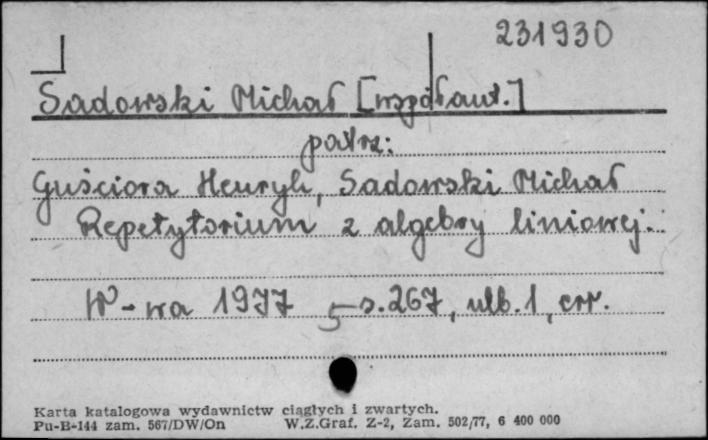 231930
Sadowski Michał [współaut.]
patrz:
Guściora Henryk, Sadowski Michał
Repetytorium z algebry liniowej.
W-wa 1977 s. 267, ulb. 1, err.
Karta katalogowa wydawnictw ciągłych i zwartych.
Pu-B-144 zam. 567/DW/On W.Z.Graf. Z-2, Zam. 502/77, 6 400 000